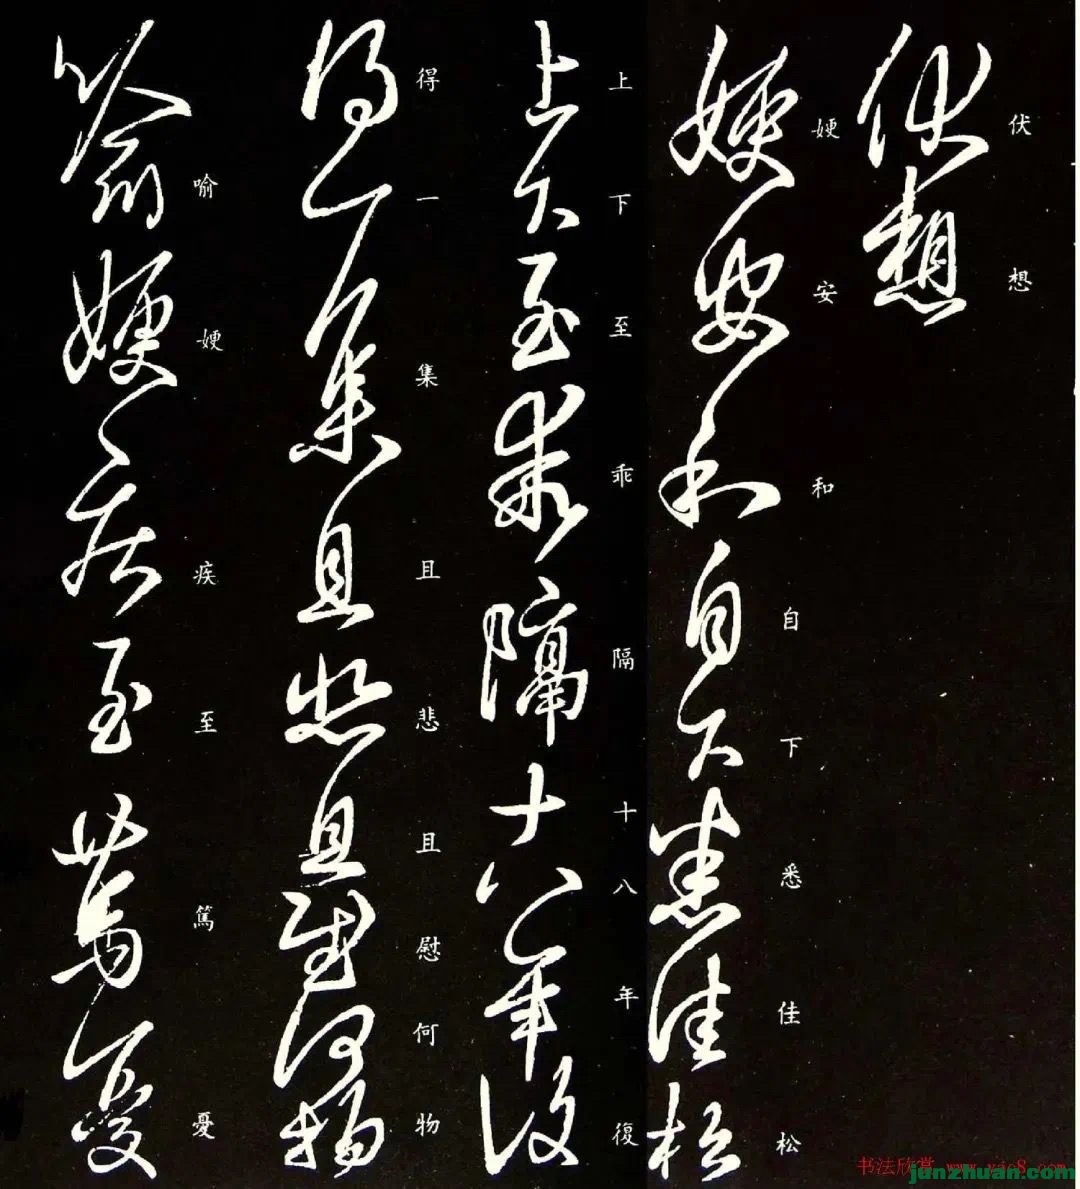 伏想
嫂安和自下悉佳松
上下至乖隔十八年復
得一集且悲且慰何物
喻嫂疾至篤憂
书法欣赏 www.yac8.com
junzhuan.com